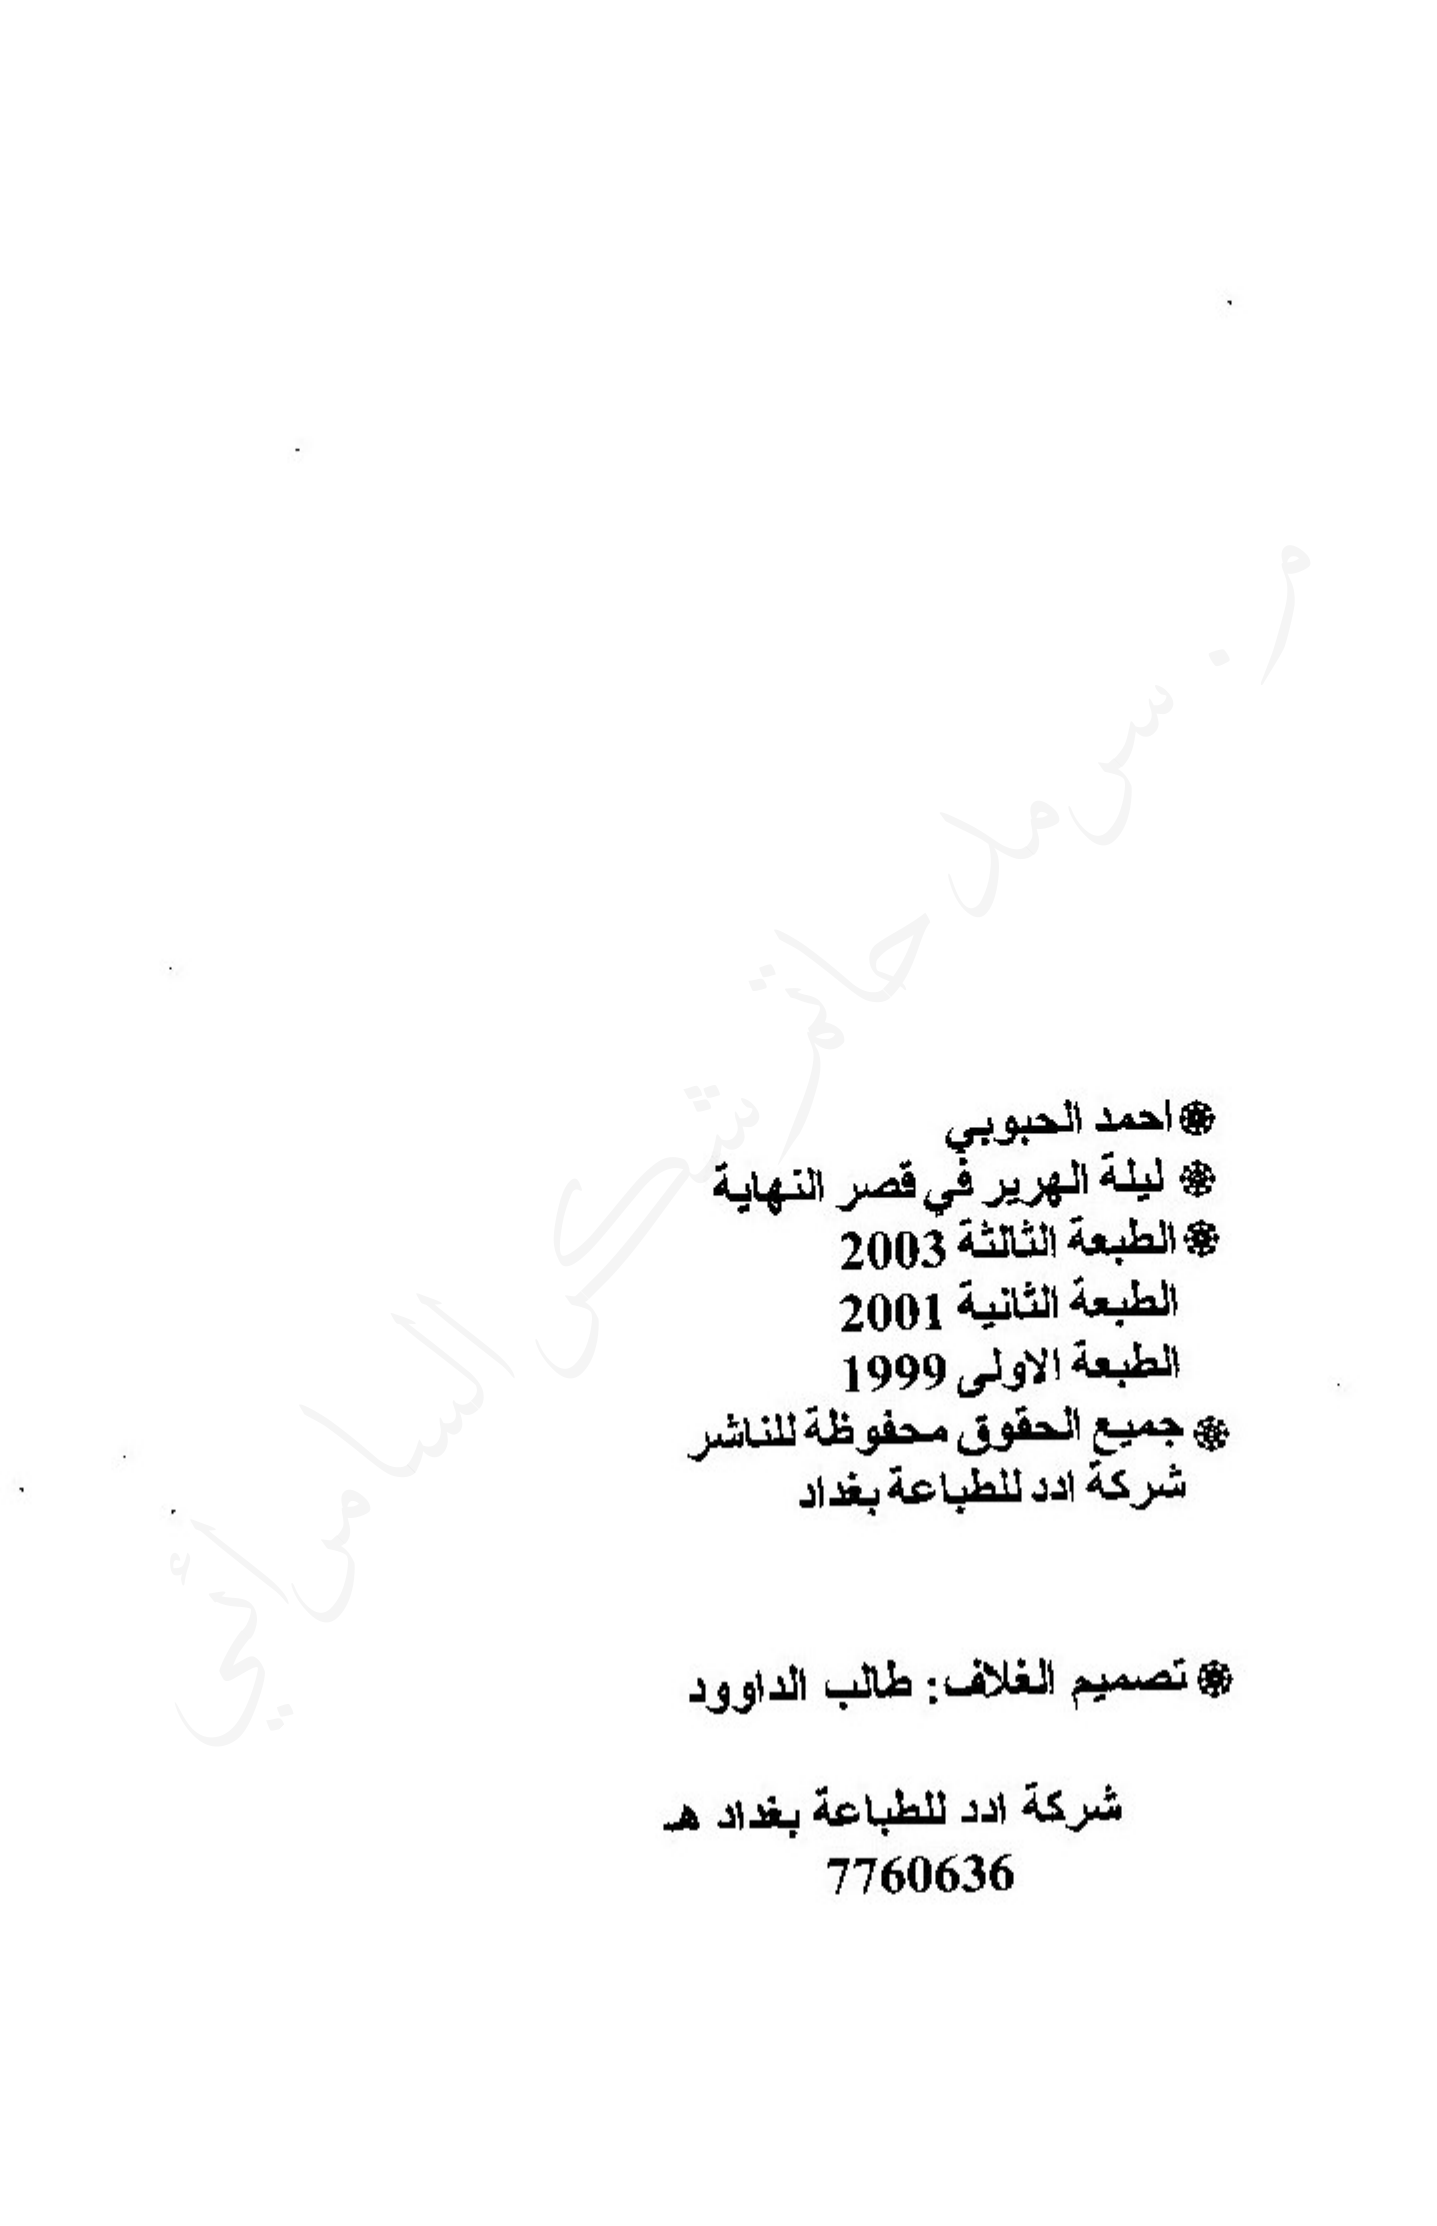 ❁ احمد الحبوبي
❁ ليلة الهرير في قصر النهاية
❁ الطبعة الثالثة 2003
الطبعة الثانية 2001
الطبعة الاولى 1999
❁ جميع الحقوق محفوظة للناشر
شركة ادد للطباعة بغداد
❁ تصميم الغلاف: طالب الداوود
شركة ادد للطباعة بغداد هـ
7760636
م. سرمد حاتم شكر السامرائي